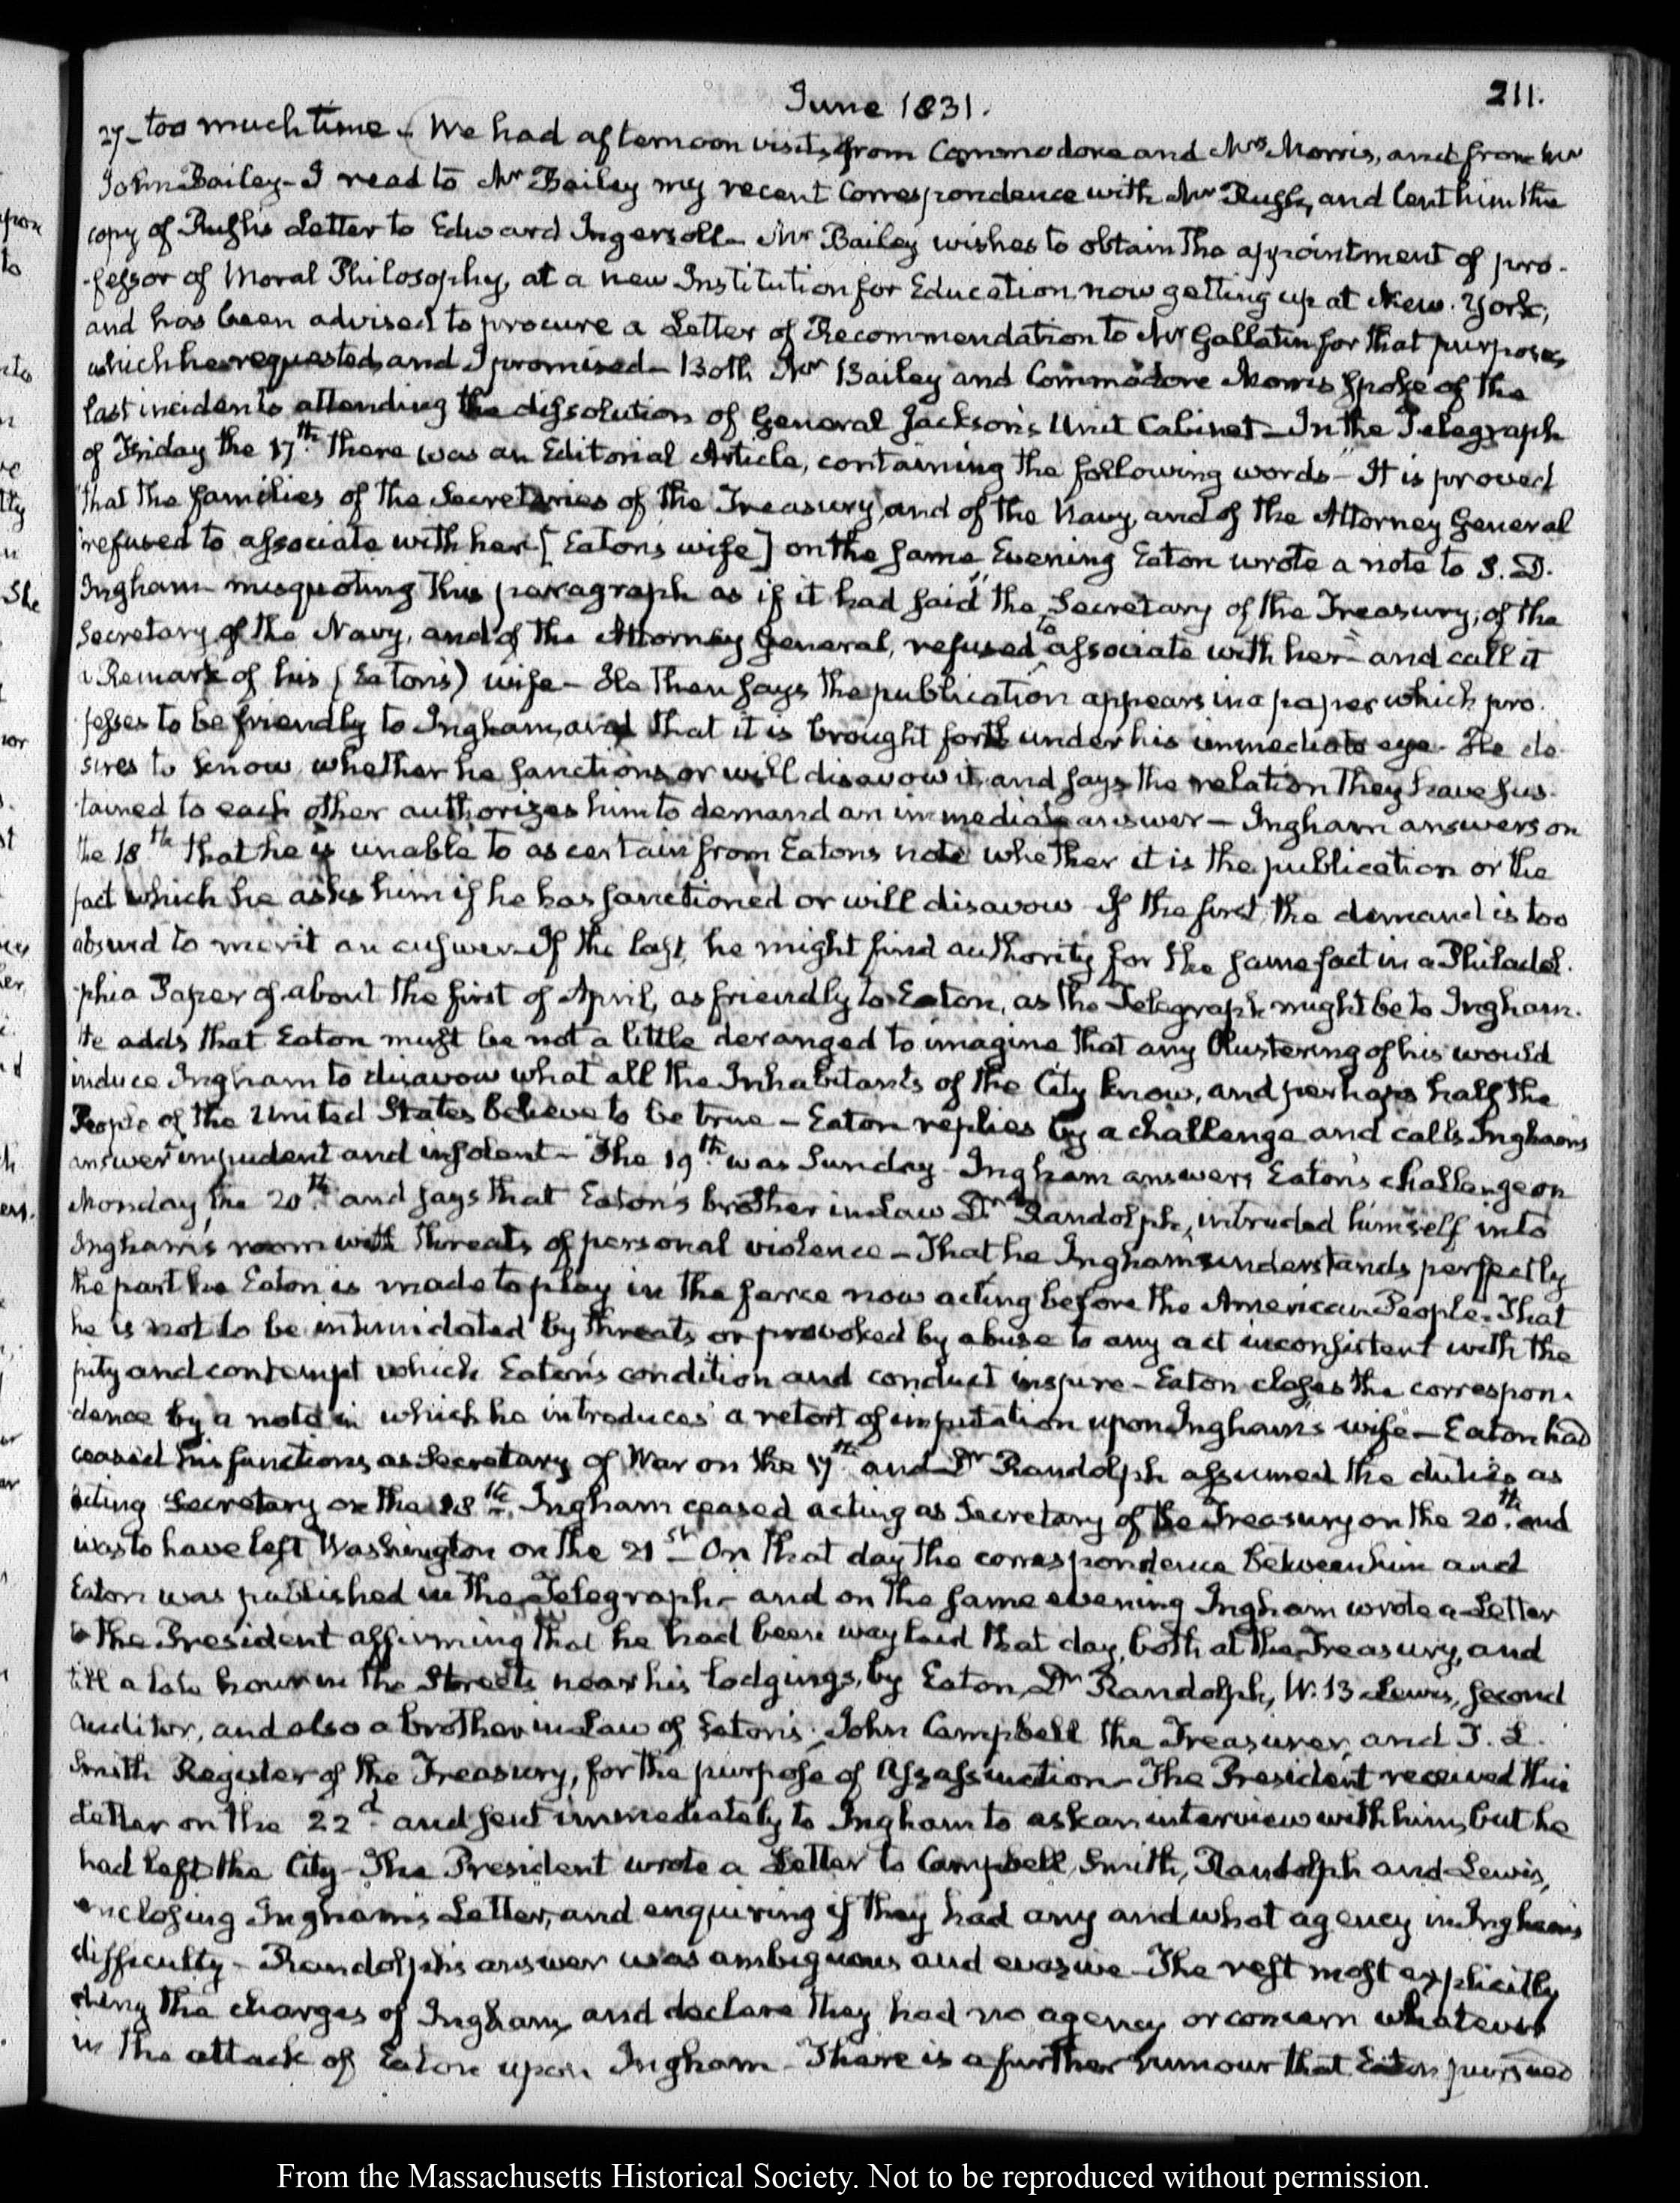 June 1831.
211.
27– too much time – We had afternoon visits from Commodore and Mrs Morris, and from Mr
John Bailey – I read to Mr Bailey my recent Correspondence with Mr Rush, and lent him the
copy of Rush's Letter to Edward Ingersoll – Mr Bailey wishes to obtain the appointment of pro-
-fessor of Moral Philosophy, at a new Institution for Education, now getting up at New-York,
and has been advised to procure a Letter of Recommendation to Mr Gallatin for that purpose,
which he requested, and I promised – Both Mr Bailey and Commodore Morris spoke of the
last incidents attending the dissolution of General Jackson's Unit Cabinet – In the Telegraph
of Friday the 17th there was an Editorial Article, containing the following words – It is proved
"that the families of the Secretaries of the Treasury, and of the Navy, and of the Attorney General
"refused to associate with her [Eaton's wife] on the same Evening Eaton wrote a note to S. D.
Ingham misquoting this paragraph as if it had said "the Secretary of the Treasury, of the
Secretary of the Navy, and of the Attorney General, refused to associate with her" and call it
a Remark of his (Eaton's) wife – He then says the publication appears in a paper which pro-
fesses to be friendly to Ingham, and that it is brought forth under his immediate eye. He de-
sires to know whether he sanctions, or will disavow it, and says the relation they have sus-
tained to each other authorizes him to demand an immediate answer – Ingham answers on
the 18th that he is unable to ascertain from Eatons note whether it is the publication or the
fact which he asks him if he has sanctioned or will disavow – If the first, the demand is too
absurd to merit an answer – If the last, he might find authority for the same fact in a Philadel-
-phia Paper of about the first of April, as friendly to Eaton, as the Telegraph might be to Ingham.
He adds that Eaton must be not a little deranged to imagine that any blustering of his would
induce Ingham to disavow what all the Inhabitants of the City know, and perhaps half the
People of the United States believe to be true – Eaton replies by a challenge and calls Ingham's
answer impudent and insolent – The 19th was Sunday – Ingham answers Eaton's challenge on
Monday, the 20th and says that Eaton's brother in Law Dr Randolph, intruded himself into
Ingham's room with threats of personal violence – That he Ingham understands perfectly
the part he Eaton is made to play in the farce now acting before the American People. That
he is not to be intimidated by threats or provoked by abuse to any act inconsistent with the
pity and contempt which Eaton's condition and conduct inspire – Eaton closes the correspon-
dence by a note in which he introduces a retort of imputation upon Ingham's wife – Eaton had
ceased his functions as Secretary of War on the 17th and Dr Randolph assumed the duties as
acting Secretary on the 18th. Ingham ceased acting as Secretary of the Treasury on the 20th. and
was to have left Washington on the 21st – On that day the correspondence between him and
Eaton was published in the Telegraph – and on the same evening Ingham wrote a Letter
to the President affirming that he had been waylaid that day, both at the Treasury, and
till a late hour in the Streets near his lodgings, by Eaton, Dr Randolph, W. B Lewis, second
Auditor, and also a brother in Law of Eaton's, John Campbell the Treasurer, and T. L.
Smith Register of the Treasury, for the purpose of Assassination – The President received this
Letter on the 22d and sent immediately to Ingham to ask an interview with him, but he
had left the City – The President wrote a Letter to Campbell, Smith, Randolph and Lewis,
enclosing Ingham's Letter, and enquiring if they had any and what agency in Ingham's
difficulty – Randolph's answer was ambiguous and evasive – The rest most explicitly
deny the charges of Ingham, and declare they had no agency or concern whatever
in the attack of Eaton upon Ingham – There is a further rumour that Eaton pursued
From the Massachusetts Historical Society. Not to be reproduced without permission.